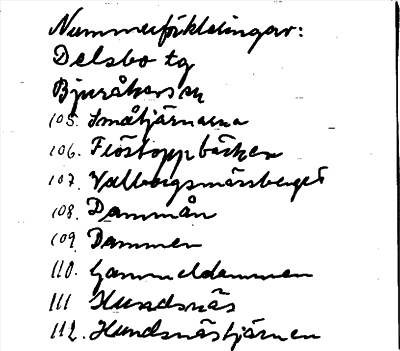 Nummerförklaringar:
Delsbo tg
Bjuråkers sn
105. Småtjärnarna
106. Flöstoppbäcken
107. Valborgsmässberget
108. Dammån
109. Dammen
110. Gammeldammen
111 Hundsnäs
112. Hundsnästjärnen